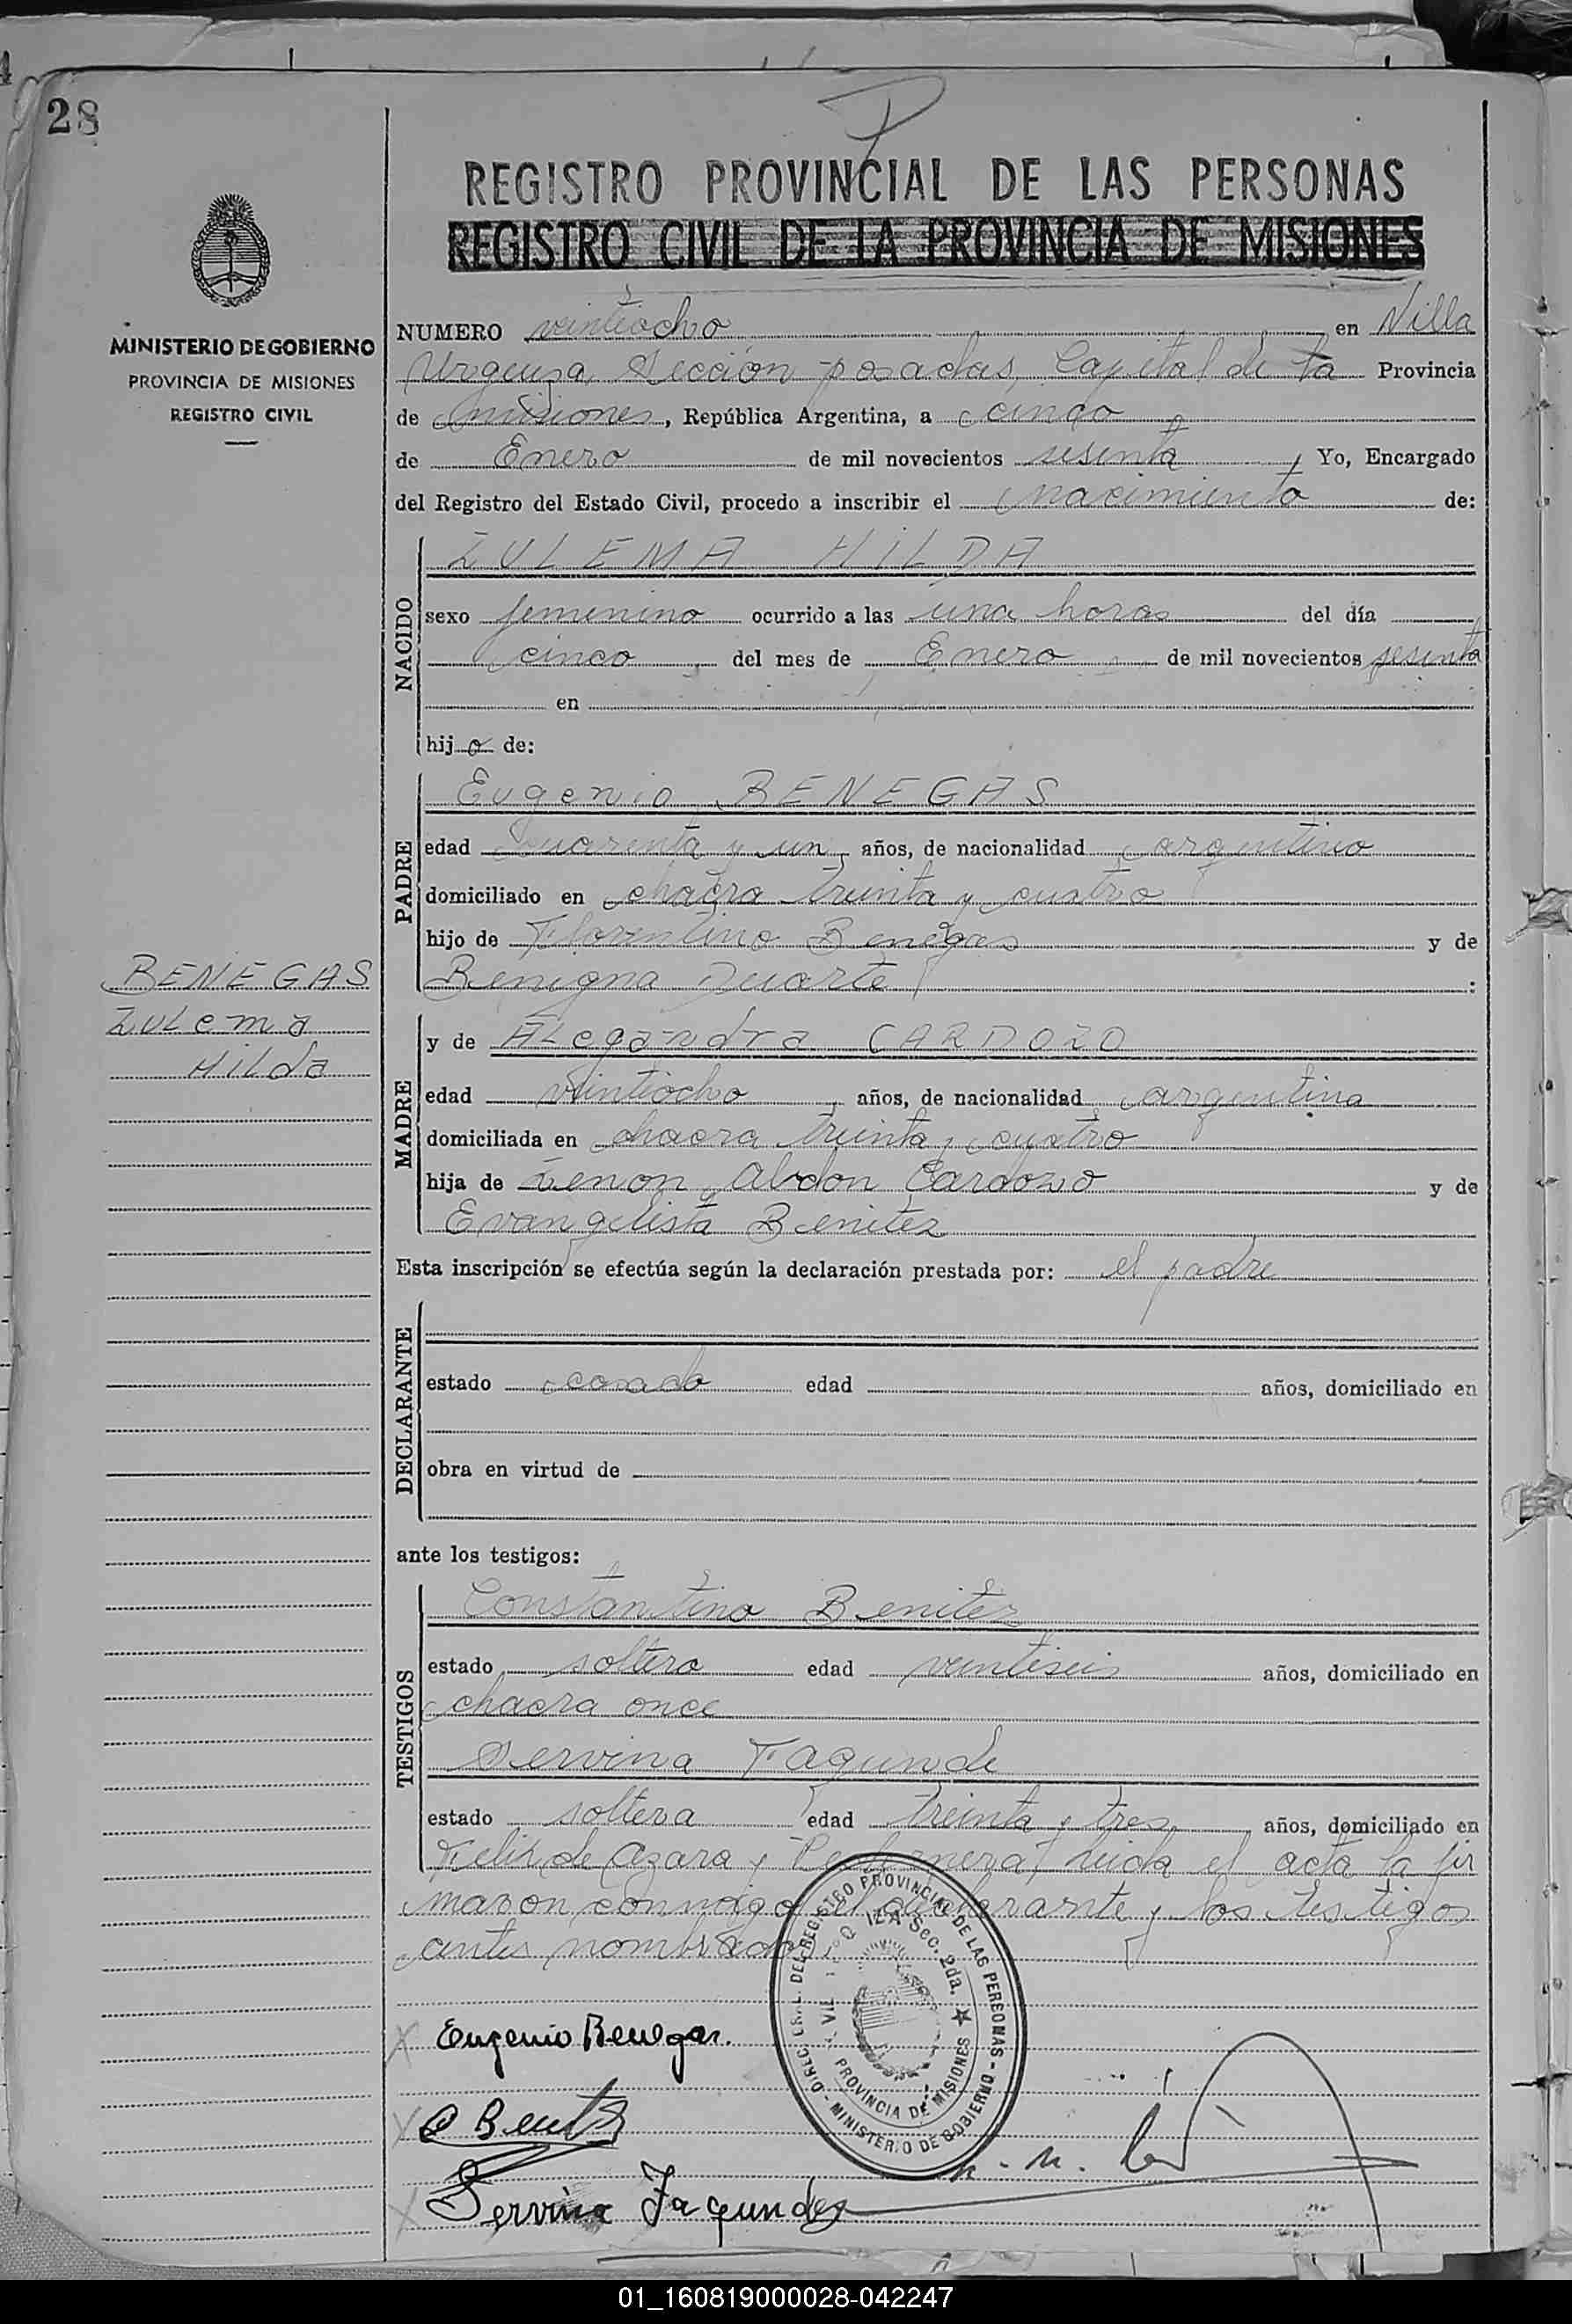 28
REGISTRO PROVINCIAL DE LAS PERSONAS
REGISTRO CIVIL DE LA PROVINCIA DE MISIONES
MINISTERIO DE GOBIERNO
PROVINCIA DE MISIONES
REGISTRO CIVIL
NUMERO veintiocho en Villa
Urquiza Sección posadas, Capital de la Provincia
de misiones, República Argentina, a cinco
de Enero de mil novecientos sesenta, Yo, Encargado
del Registro del Estado Civil, procedo a inscribir el nacimiento de:
NACIDO
ZULEMA HILDA
sexo femenino ocurrido a las una horas del día
cinco del mes de Enero de mil novecientos sesenta
en
hij a de:
PADRE
Eugenio BENEGAS
edad cuarenta y un años, de nacionalidad argentino
domiciliado en chacra treinta y cuatro
hijo de Florentino Benegas y de
Benigna Duarte :
BENEGAS
Zulema
Hilda
MADRE
y de Alegandra CARDOZO
edad veintiocho, años, de nacionalidad argentina
domiciliada en chacra treinta y cuatro
hija de Zenon Abdon Cardozo y de
Evangelista Benitez
Esta inscripción se efectúa según la declaración prestada por: el padre
DECLARANTE
estado casado edad años, domiciliado en
obra en virtud de
ante los testigos:
TESTIGOS
Constantino Benitez
estado soltero edad veintiseis años, domiciliado en
chacra once
Servina Fagunde
estado soltera edad treinta y tres, años, domiciliado en
Felix de Azara y leida el acta la fir
maron conmigo el declarante y los testigos
antes nombrados
DEL REGISTRO PROVINCIAL DE LAS PERSONAS - MINISTERIO DE GOBIERNO -
Sec. 2da. ★ PROVINCIA DE MISIONES
Eugenio Benegas.
C Benitez
Servina Fagundez
01_160819000028-042247